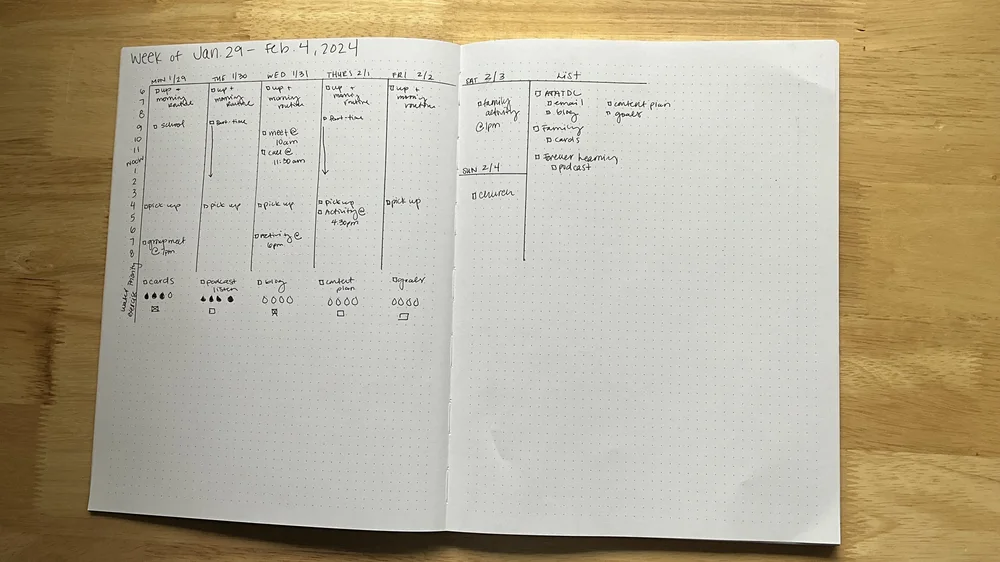 Week of Jan. 29 - Feb. 4, 2024
MON 1/29
TUE 1/30
WED 1/31
THURS 2/1
FRI 2/2
6
7
8
9
10
11
NOON
1
2
3
4
5
6
7
8
up +
morning
routine
school
pick up
group meet
up +
morning
routine
part-time
pick up
up +
morning
routine
meet @
10am
call @
11:30am
pick up
activity @
6pm
up +
morning
routine
part-time
pick up
Activity @
4:30pm
up +
morning
routine
pick up
Priority
cards
podcast
listen
blog
content
plan
goals
water
exercise
SAT 2/3
family
activity
@1pm
SUN 2/4
church
List
email
blog
content plan
goals
Family
cards
Forever Learning
podcast